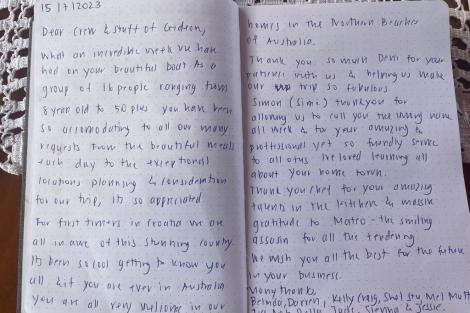 15/7/2023
Dear Crew & staff of Gideon,
What an incredible week we have
had on your beautiful boat. As a
group of 16 people ranging from
8 year old to 50 plus you have been
so accomodating to all our many
requests. From the beautiful meals
each day to the exceptional
locations planning & consideration
for our trip, its so appreciated.
For first timers in Croatia we are
all in awe of this stunning country.
Its been so cool getting to know you
all & if you are ever in Australia
you are all very welcome in our
homes in the Northern Beaches
of Australia.
Thank you so much Deni for your
patience with us & helping us make
our trip so fabulous
Simon (Simi) thankyou for
allowing us to call you the wrong name
all week & to your amazing &
professional yet so friendly service
to all of us. Ive loved learning all
about your home town.
Thank you chef for your amazing
talents in the kitchen & massive
gratitude to Matro - the smiling
assassin for all the tendering
We wish you all the best for the future
in your business.
Many thanks
Belinda, Darren, Kelly, Craig, Mel, Matt
Jude, Sienna & Jessie.